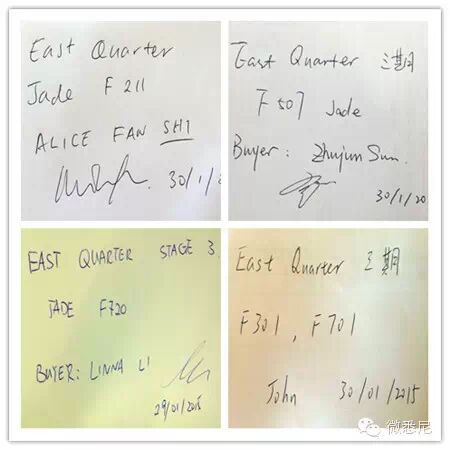 East Quarter
Jade F 211
ALICE FAN SHI
30/1/20
East Quarter 三期
F507 Jade
Buyer: Zhujun Sun.
30/1/20
EAST QUARTER STAGE 3.
JADE F720
BUYER: LINNA LI
29/01/2015
East Quarter 三期
F301, F701
John 30/01/2015
微悉尼